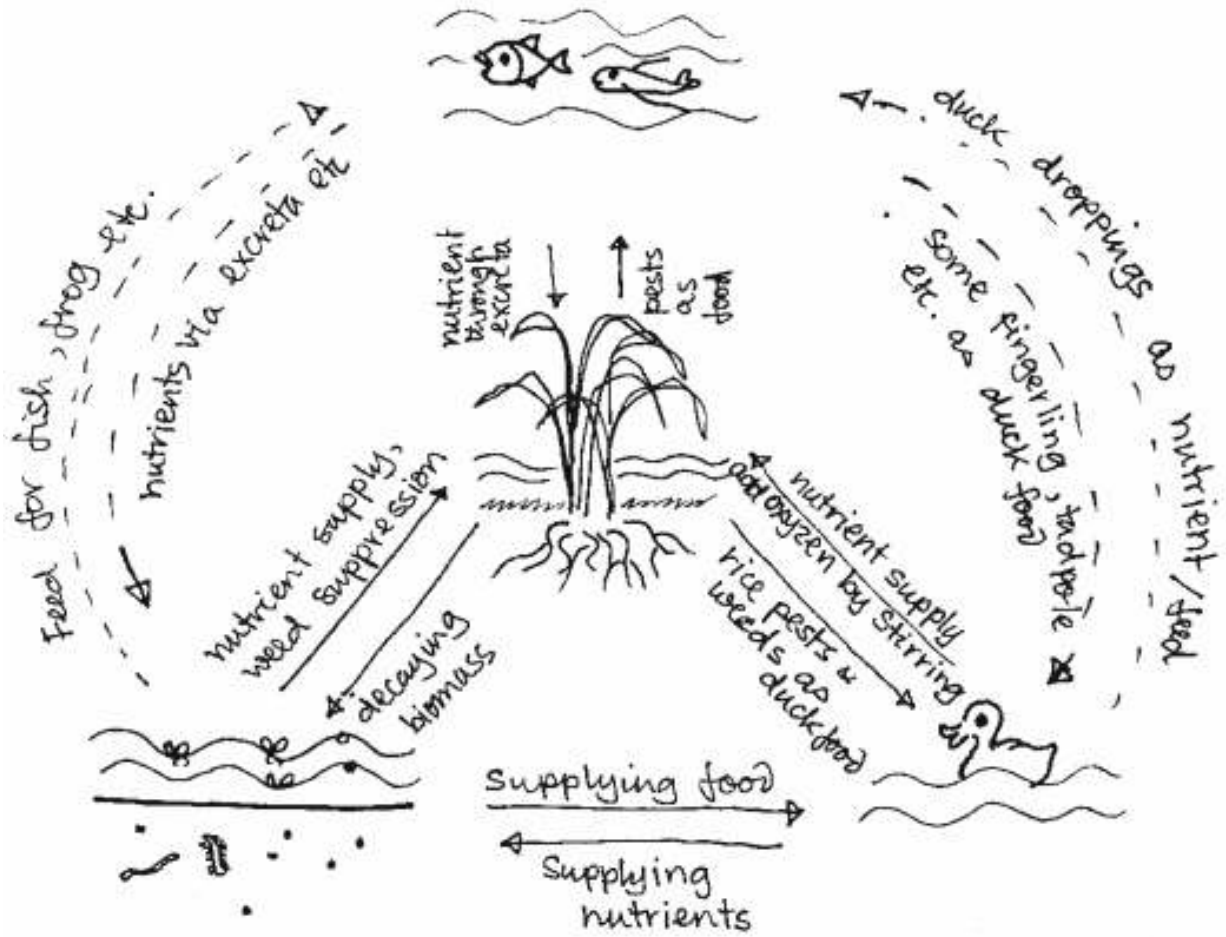 Feed for fish, frog etc.
nutrients via excreta etc
duck droppings as nutrient/feed
some fingerling, tadpole
etc. as duck food
nutrient
through
excreta
pests
as
food
nutrient supply,
weed suppression
decaying
biomass
nutrient supply
add oxyzen by stirring
rice pests &
weeds as
duck food
Supplying food
Supplying
nutrients